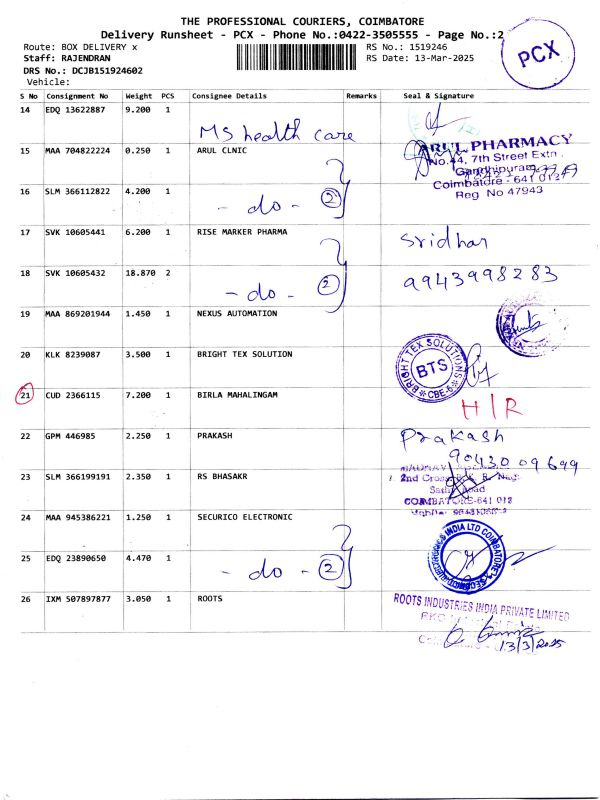 THE PROFESSIONAL COURIERS, COIMBATORE
Delivery Runsheet - PCX - Phone No.:0422-3505555 - Page No.:2
PCX
Route: BOX DELIVERY x
RS No.: 1519246
Staff: RAJENDRAN
RS Date: 13-Mar-2025
DRS No.: DCJB151924602
Vehicle:
S No Consignment No Weight PCS Consignee Details Remarks Seal & Signature
14 EDQ 13622887 9.200 1
MS health care
15 MAA 704822224 0.250 1 ARUL CLNIC
ARUL PHARMACY
No.44, 7th Street Extn.
Gandhipuram
Coimbatore - 641 012
Reg No 47943
16 SLM 366112822 4.200 1
- do - 2
17 SVK 10605441 6.200 1 RISE MARKER PHARMA
Sridhar
18 SVK 10605432 18.870 2
- do - 2
9943998283
19 MAA 869201944 1.450 1 NEXUS AUTOMATION
20 KLK 8239087 3.500 1 BRIGHT TEX SOLUTION
BRIGHT TEX SOLUTIONS
BTS
CBE-6
21 CUD 2366115 7.200 1 BIRLA MAHALINGAM
H/R
22 GPM 446985 2.250 1 PRAKASH
Prakash
9043009699
23 SLM 366199191 2.350 1 RS BHASAKR
2nd Cross
COIMBATORE-641 012
24 MAA 945386221 1.250 1 SECURICO ELECTRONIC
25 EDQ 23890650 4.470 1
- do - 2
INDIA LTD COIMBATORE
26 IXM 507897877 3.050 1 ROOTS
ROOTS INDUSTRIES INDIA PRIVATE LIMITED
13/3/2025